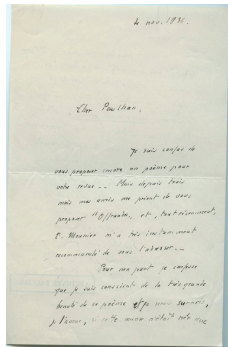 4 nov. 1936.
Cher Paulhan.
Je suis confus de
vous proposer encore un poème pour
votre revue -- Mais depuis trois
mois mes amis me prient de vous
proposer "Offrande" et, tout récemment,
P. Meunier m'a très instamment
recommandé de vous l'adresser --
Pour ma part je suppose
que je suis conscient de la très grande
beauté de ce poème et je
je l'avoue, si cette